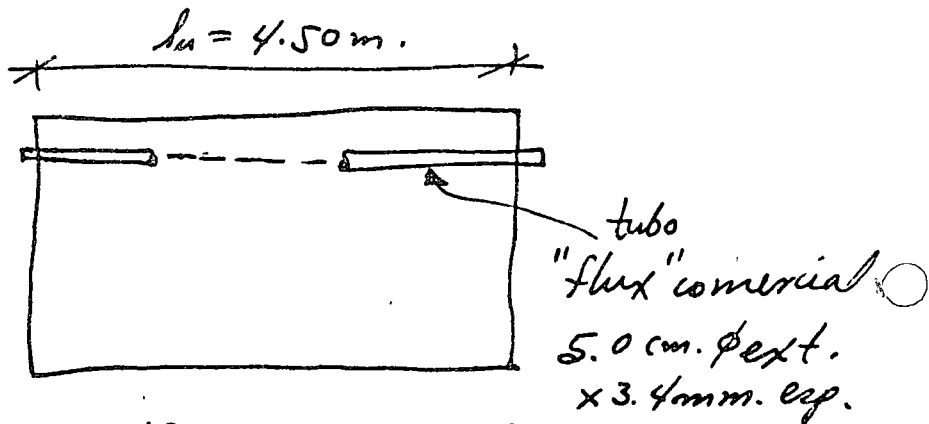 lu = 4.50 m.
tubo
"flux" comercial
5.0 cm. φ ext.
x 3.4 mm. esp.